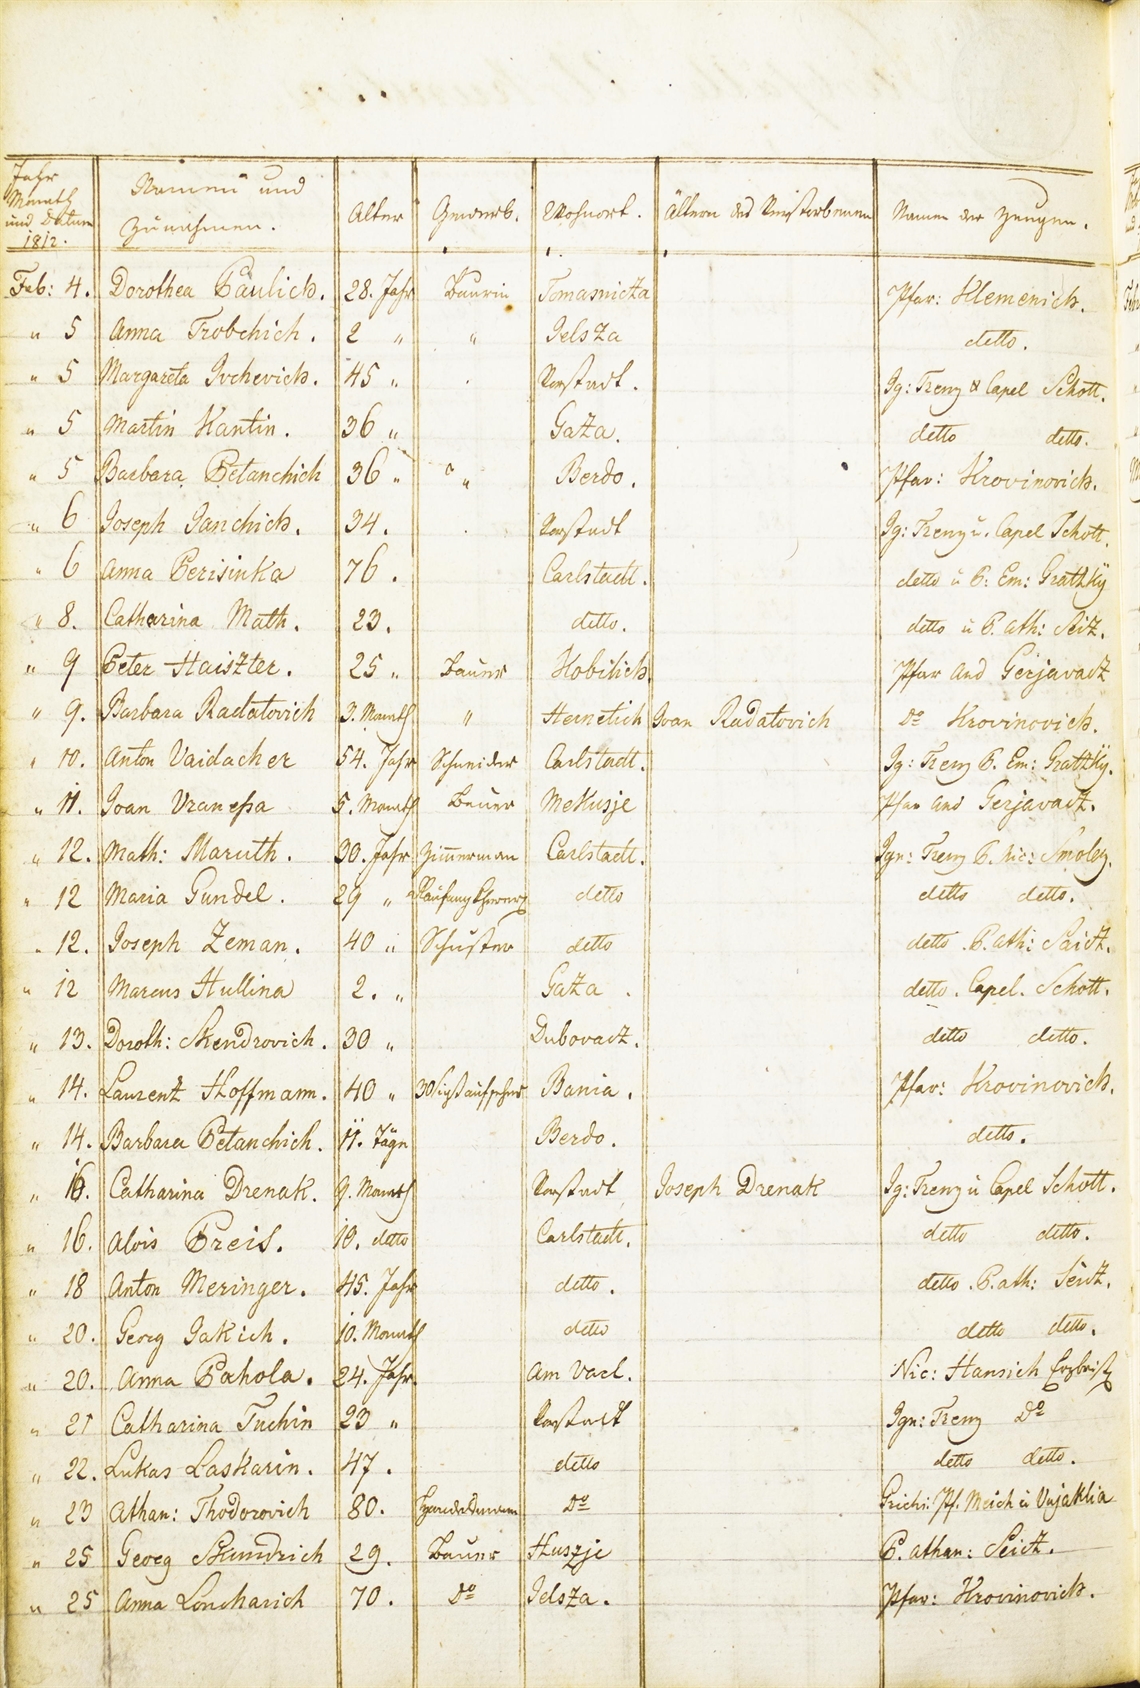 Jahr Monath und Datum 1812. Namen und Zunahmen. Alter Gewerb. Wohnort. Ältern des Verstorbenen Namen der Zeugen.
Feb: 4. Dorothea Paulich. 28. Jahr Bäurin Tomasnicza Pfar: Klemenich.
" 5 Anna Trobchich. 2 " " Jelsza detto.
" 5 Margareta Ivchevich. 45 " Vorstadt. Ig: Treny & Capel Schott.
" 5 Martin Kantin. 36 " Gaza. detto detto.
" 5 Barbara Petanchich 36 " " Berdo. Pfar: Krovinovich.
" 6 Joseph Janchich. 34. Vorstadt Ig: Treny u. Capel Schott.
" 6 Anna Perisinka 76. Carlstadt. detto u P: Em: Gratzky
" 8. Catharina Math. 23. detto. detto u P. Ath: Seitz.
" 9 Peter Haiszter. 25 " Bauer Kobilich. Pfar And Gerjavacz
" 9. Barbara Radatovich 3. Monath " Hernetich Ivan Radatovich Do Krovinovich.
" 10. Anton Vaidacher 54. Jahr Schneider Carlstadt. Ig: Treny P. Em: Gratzky.
" 11. Joan Vranessa 5. Monath Bauer Mekusje Pfar And Gerjavacz.
" 12. Math: Maruth. 30. Jahr Zimerman Carlstadt. Ign: Treny P. Nic: Smoley.
" 12 Maria Gundel. 29 " detto detto detto.
" 12. Joseph Zeman. 40 " Schuster detto detto P. Ath: Saitz.
" 12 Marcus Hullina 2. " Gaza. detto. Capel. Schott.
" 13. Doroth: Skendrovich. 30 " Dubovacz. detto detto.
" 14. Laurenz Hoffmann. 40 " Bania. Pfar: Krovinovich.
" 14. Barbara Petanchich. 11. Täge Berdo. detto.
" 16. Catharina Drenak. 9. Monath Vorstadt Joseph Drenak Ig: Treny u Capel Schott.
" 16. Alois Preis. 10. detto Carlstadt. detto detto.
" 18 Anton Meringer. 45. Jahr detto. detto P. Ath: Seitz.
" 20. Georg Jakich. 10. Monath detto detto detto.
" 20. Anna Pahola. 24. Jahr. Am Varl. Nic: Hansich
" 21 Catharina Tuchin 23 " Vorstadt Ign: Treny Do
" 22. Lukas Laskarin. 47. detto detto detto.
" 23 Athan: Thodorovich 80. Handelsmann Do Grichi: Pf. Meich u Vujaklia
" 25 Georg Skundrich 29. Bauer Huszje P. Athan: Seitz.
" 25 Anna Loncharich 70. Do Jelsza. Pfar: Krovinovich.